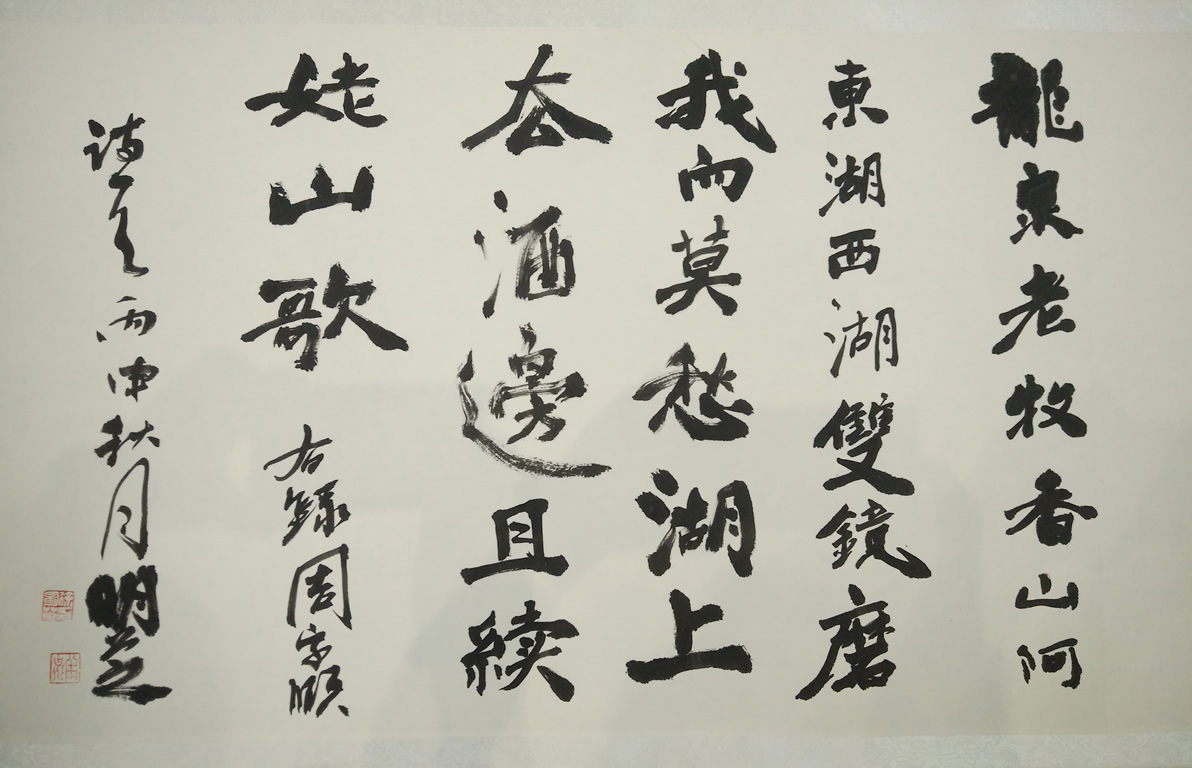 龍泉老牧香山阿
東湖西湖雙鏡磨
我向莫愁湖上
厺酒邊且續
姥山歌 右錄周
詩一首丙申秋月明